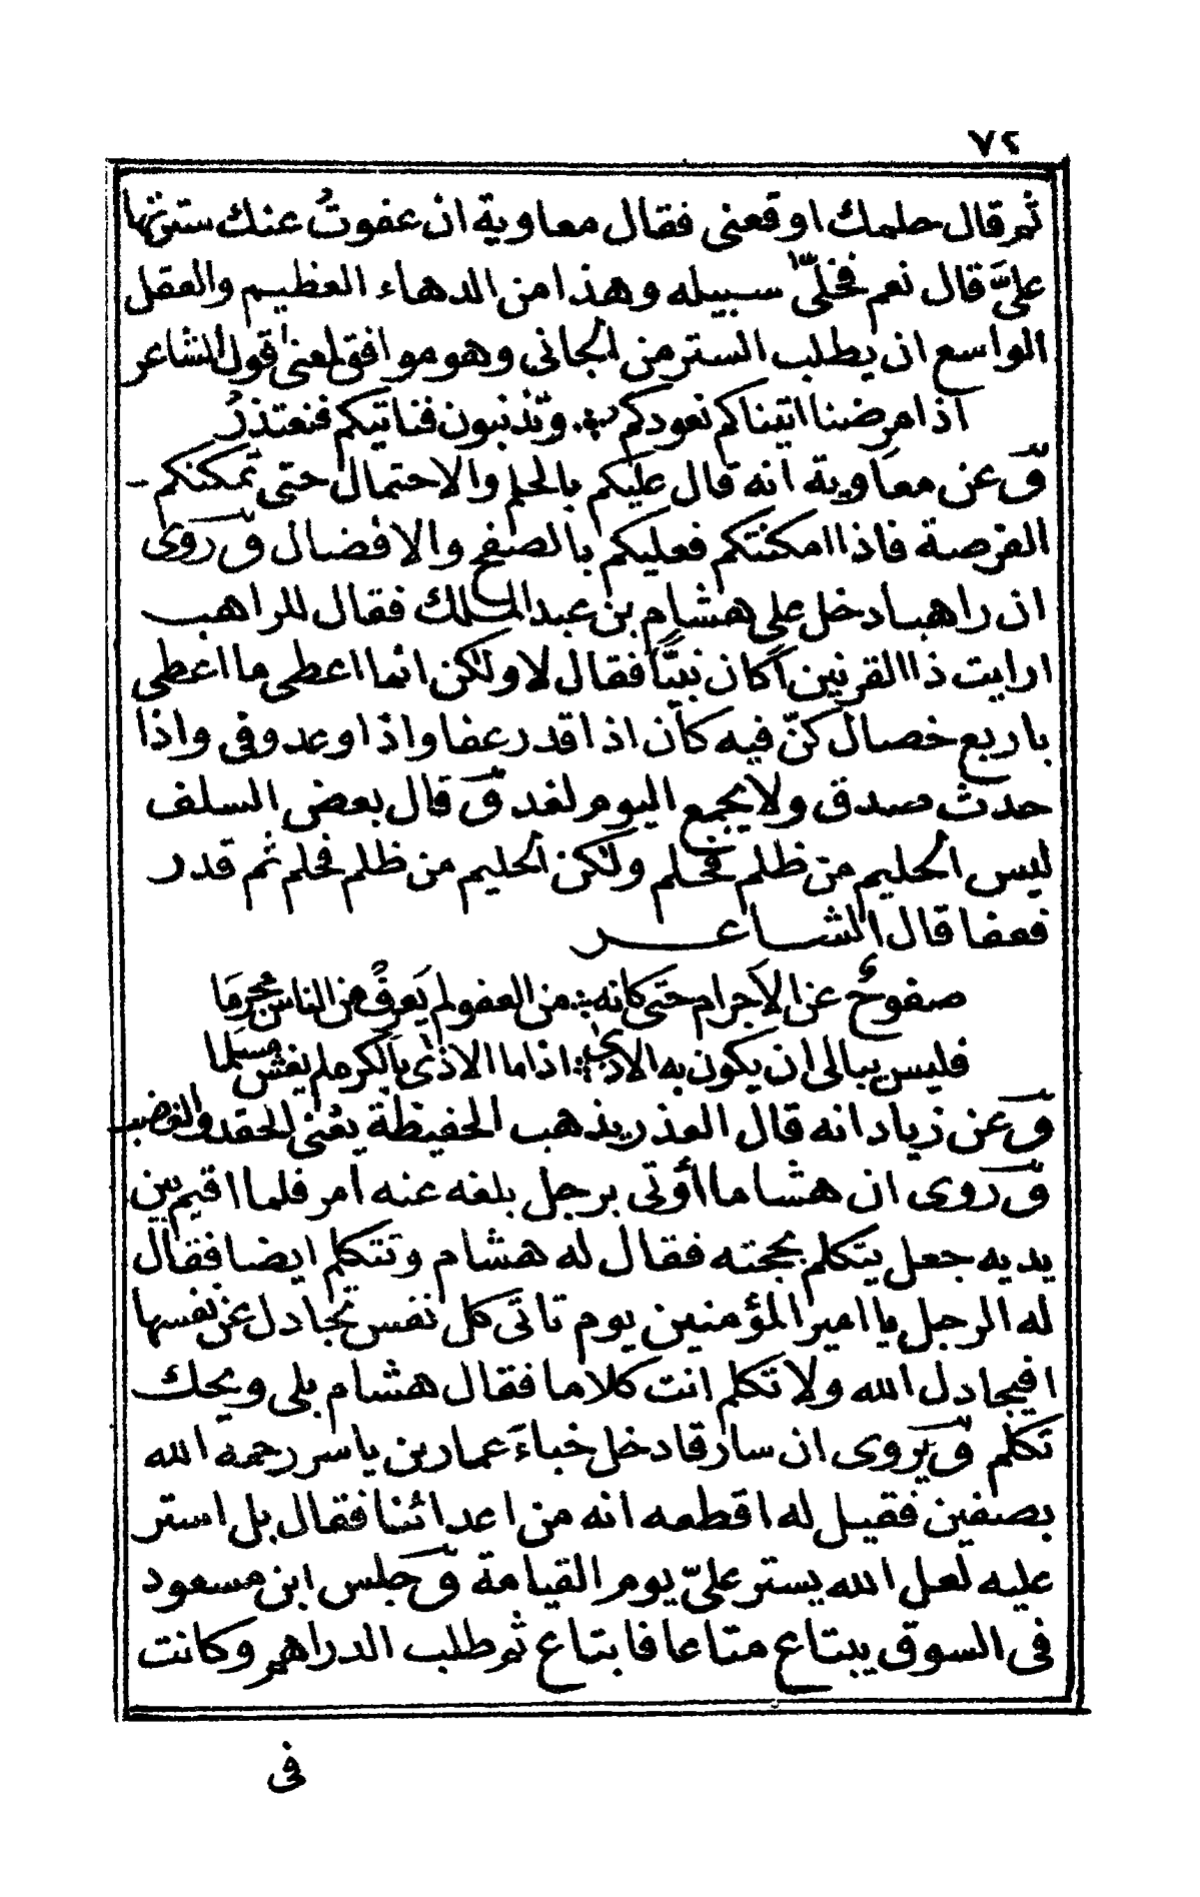 ٧٢
ثم قال حلمك اوقعنى فقال معاوية ان عفوتُ عنك سترتها
علىَّ قال نعم فخلّى سبيله وهذا من الدهاء العظيم والعقل
الواسع ان يطلب الستر من الجانى وهو موافق لمعنى قول الشاعر
اذا مرضنا اتيناكم نعودكم ؞ وتذنبون فناتيكم فنعتذرُ
وّ عن معاوية انه قال عليكم بالحلم والاحتمال حتى تمكنكم
الفرصة فاذا امكنتكم فعليكم بالصفح والافضال وّ روى
ان راهبا دخل على هشام بن عبد الملك فقال للراهب
ارايت ذا القرنين أكان نبيًّا فقال لا ولكن انما اعطى ما اعطى
باربع خصال كنّ فيه كان اذا قدر عفا واذا وعد وفى واذا
حدث صدق ولا يجمع اليوم لغد وّ قال بعض السلف
ليس الحليم من ظلم فحلم ولكن الحليم من ظلم فحلم ثم قدر
فعفا قال الشاعر
صفوحٌ عن الاجرام حتى كانه ؞ من العفو لم يَعرفْ من الناس مجرمَا
فليس يبالى ان يكون به الاذى ؞ اذا ما الاذى بالكره لم يغش مسلما
وّ عن زياد انه قال العذر يذهب الحفيظة يعنى الحقد والغضب
وّ روى ان هشاما أوتى برجل بلغه عنه امر فلما اقيم بين
يديه جعل يتكلم بحجته فقال له هشام وتتكلم ايضا فقال
له الرجل يا امير المؤمنين يوم تاتى كل نفس تجادل عن نفسها
افيجادل الله ولا تكلم انت كلاما فقال هشام بلى ويحك
تكلم وّ يروى ان سارقا دخل خباءَ عمار بن ياسر رحمه الله
بصفين فقيل له اقطعه انه من اعدائنا فقال بل استر
عليه لعل الله يستر علىّ يوم القيامة وّ جلس ابن مسعود
فى السوق يبتاع متاعا فابتاع ثم طلب الدراهم وكانت
فى